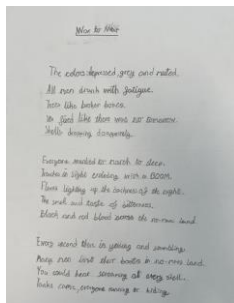 War to War
The colors: depraved, grey and muted.
All men drunk with fatigue.
Torn like broken bones.
We lived like there was no tomorrow.
Shells dropping dangerously.
Everyone needed to march to
in sight ending with a BOOM.
Flares lighting up the darkness of the night.
The smell and taste of bitterness.
Black and red blood across the no-man land.
Every second that is going and
Many men lost their battles in no-man land.
You could hear screaming at every shell..
comes, everyone running or hiding.